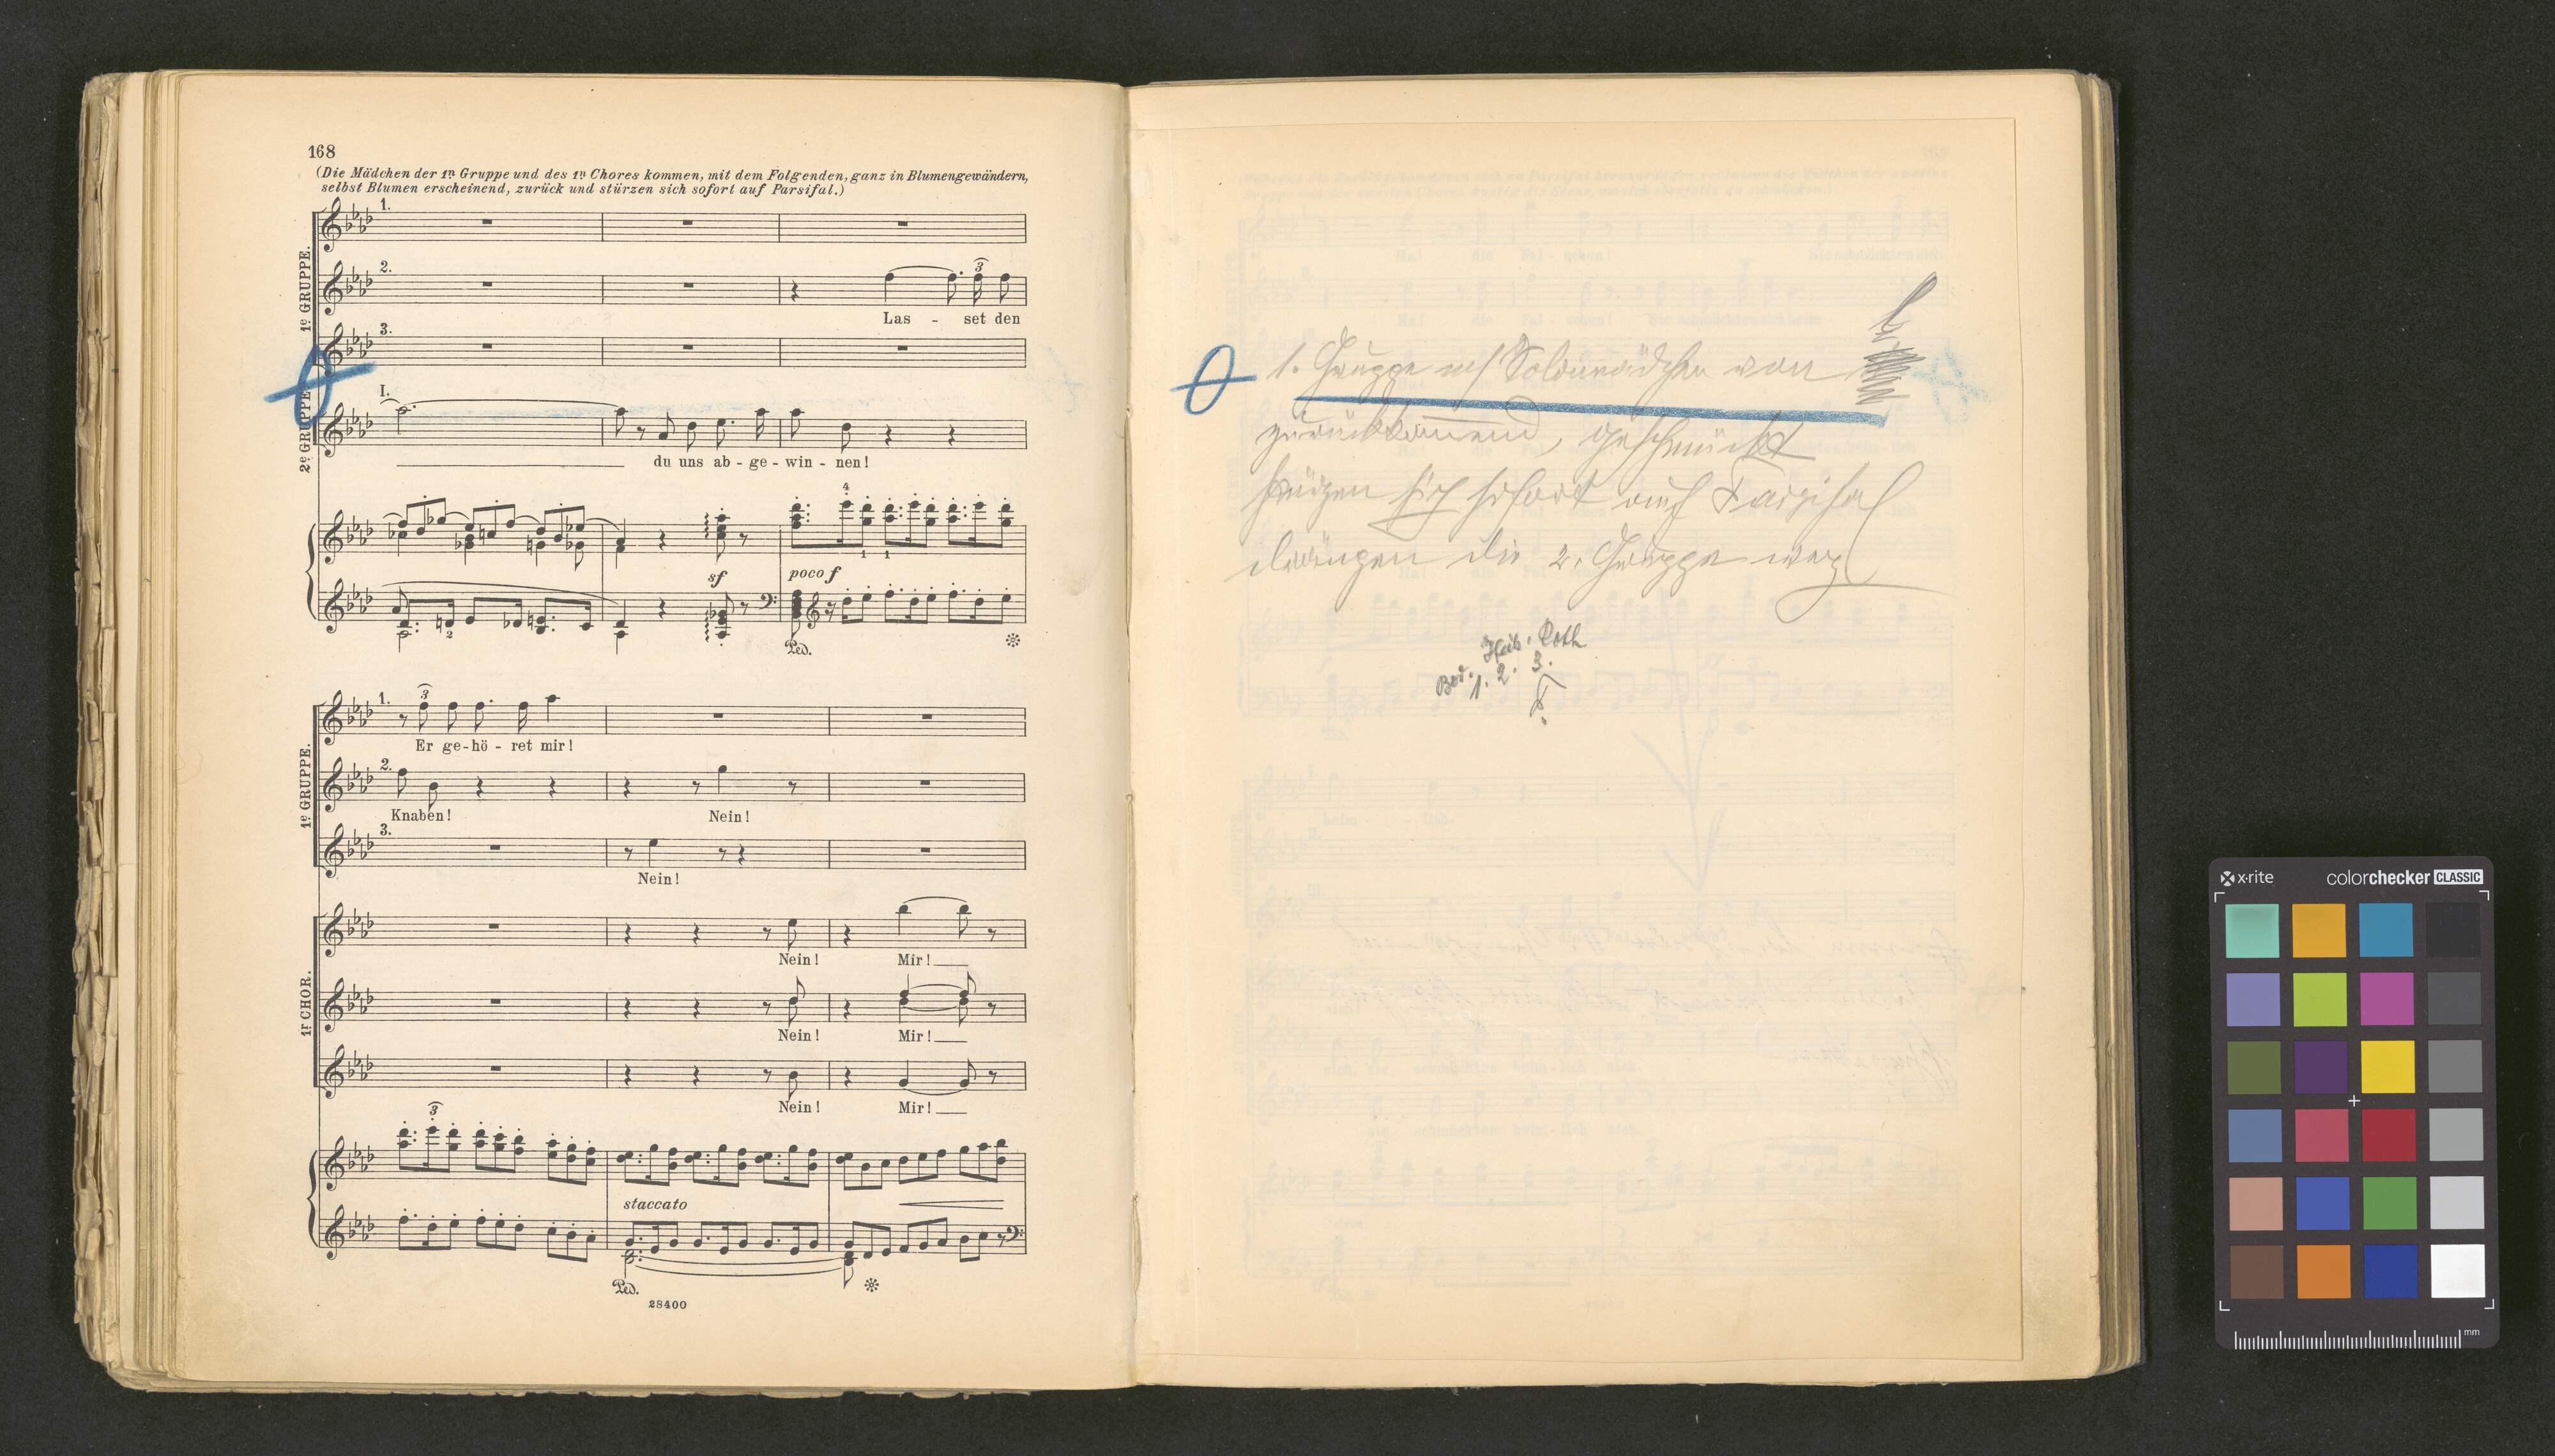 168
(Die Mädchen der 1n Gruppe und des 1n Chores kommen, mit dem Folgenden, ganz in Blumengewändern,
selbst Blumen erscheinend, zurück und stürzen sich sofort auf Parsifal.)
1e GRUPPE.
1.
2.
3
Las - set den
3.
2e GRUPPE
I.
du uns ab - ge - win - nen!
4
1 1
sf poco f
2
Ped.
1e GRUPPE.
1.
3
Er ge - hö - ret mir!
2.
Knaben! Nein!
3.
Nein!
1r CHOR.
Nein! Mir!
Nein! Mir!
Nein! Mir!
3
staccato
Ped.
28400
1. Gruppe Solomädchen von
zurückkommend, geschmückt
stürzen sich sofort auf Parsifal
drängen die 2. Gruppe weg
Roth
1. 2. 3.
x-rite colorchecker CLASSIC
mm